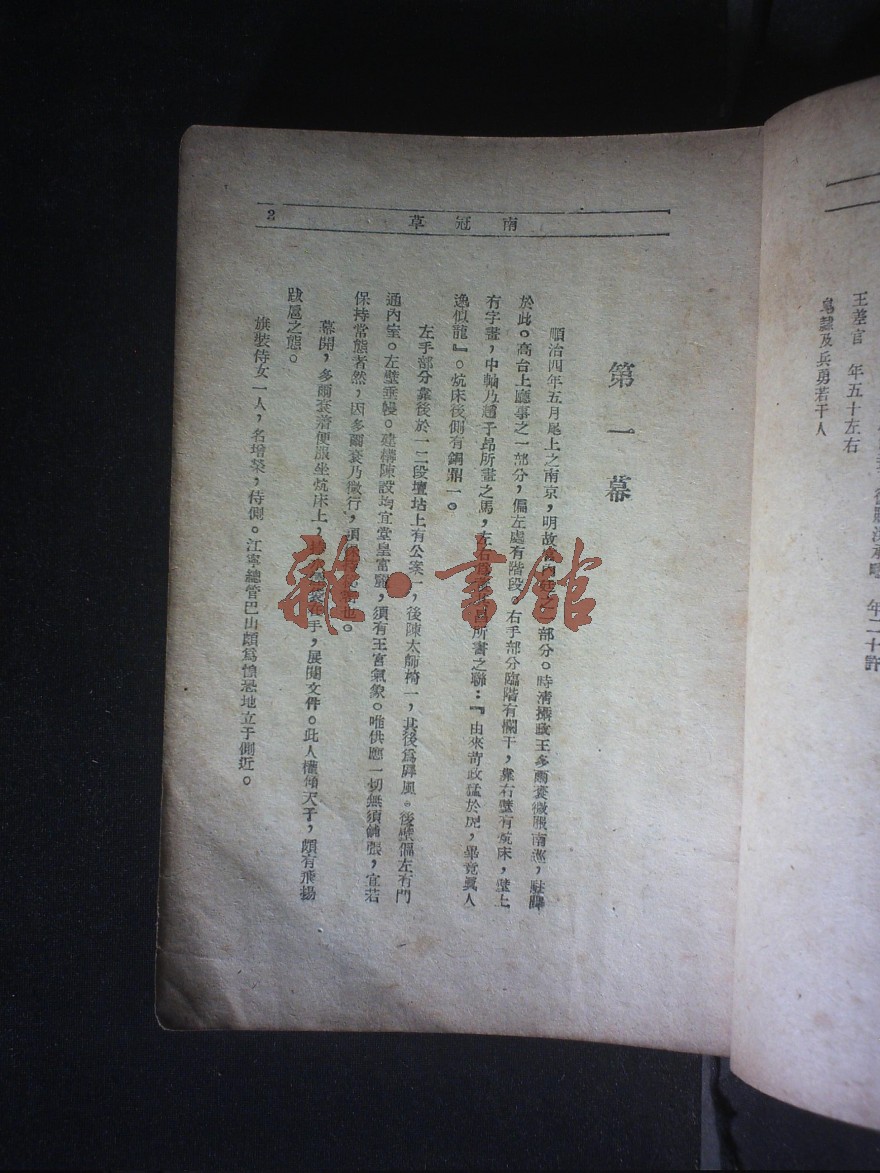 王差官　年五十左右
皂隸及兵勇若干人
南冠草
2
第一幕
順治四年五月尾上之南京，明故宮內之一部分。時清攝政王多爾袞微服南巡，駐蹕
於此。高台上廳事之一部分，偏左處有階段。右手部分臨階有欄干，靠右壁有炕床，壁上
有字畫，中軸乃趙子昂所畫之馬，左右爲 所書之聯：『由來苛政猛於虎，畢竟眞人
逸似龍』。炕床後側有銅鼎一。
左手部分靠後於一二段壇坫上有公案一，後陳太師椅一，其後爲屛風。後壁偏左有門
通內室。左壁垂幔。建構陳設均宜堂皇富麗，須有王宮氣象。唯供應一切無須鋪張，宜若
保持常態者然，因多爾袞乃微行，須 也。
幕開，多爾袞着便服坐炕床上， 手，展閱文件。此人權傾天子，頗有飛揚
跋扈之態。
旗裝侍女一人，名增榮，侍側。江寧總管巴山頗爲惶恐地立于側近。
雜·書館